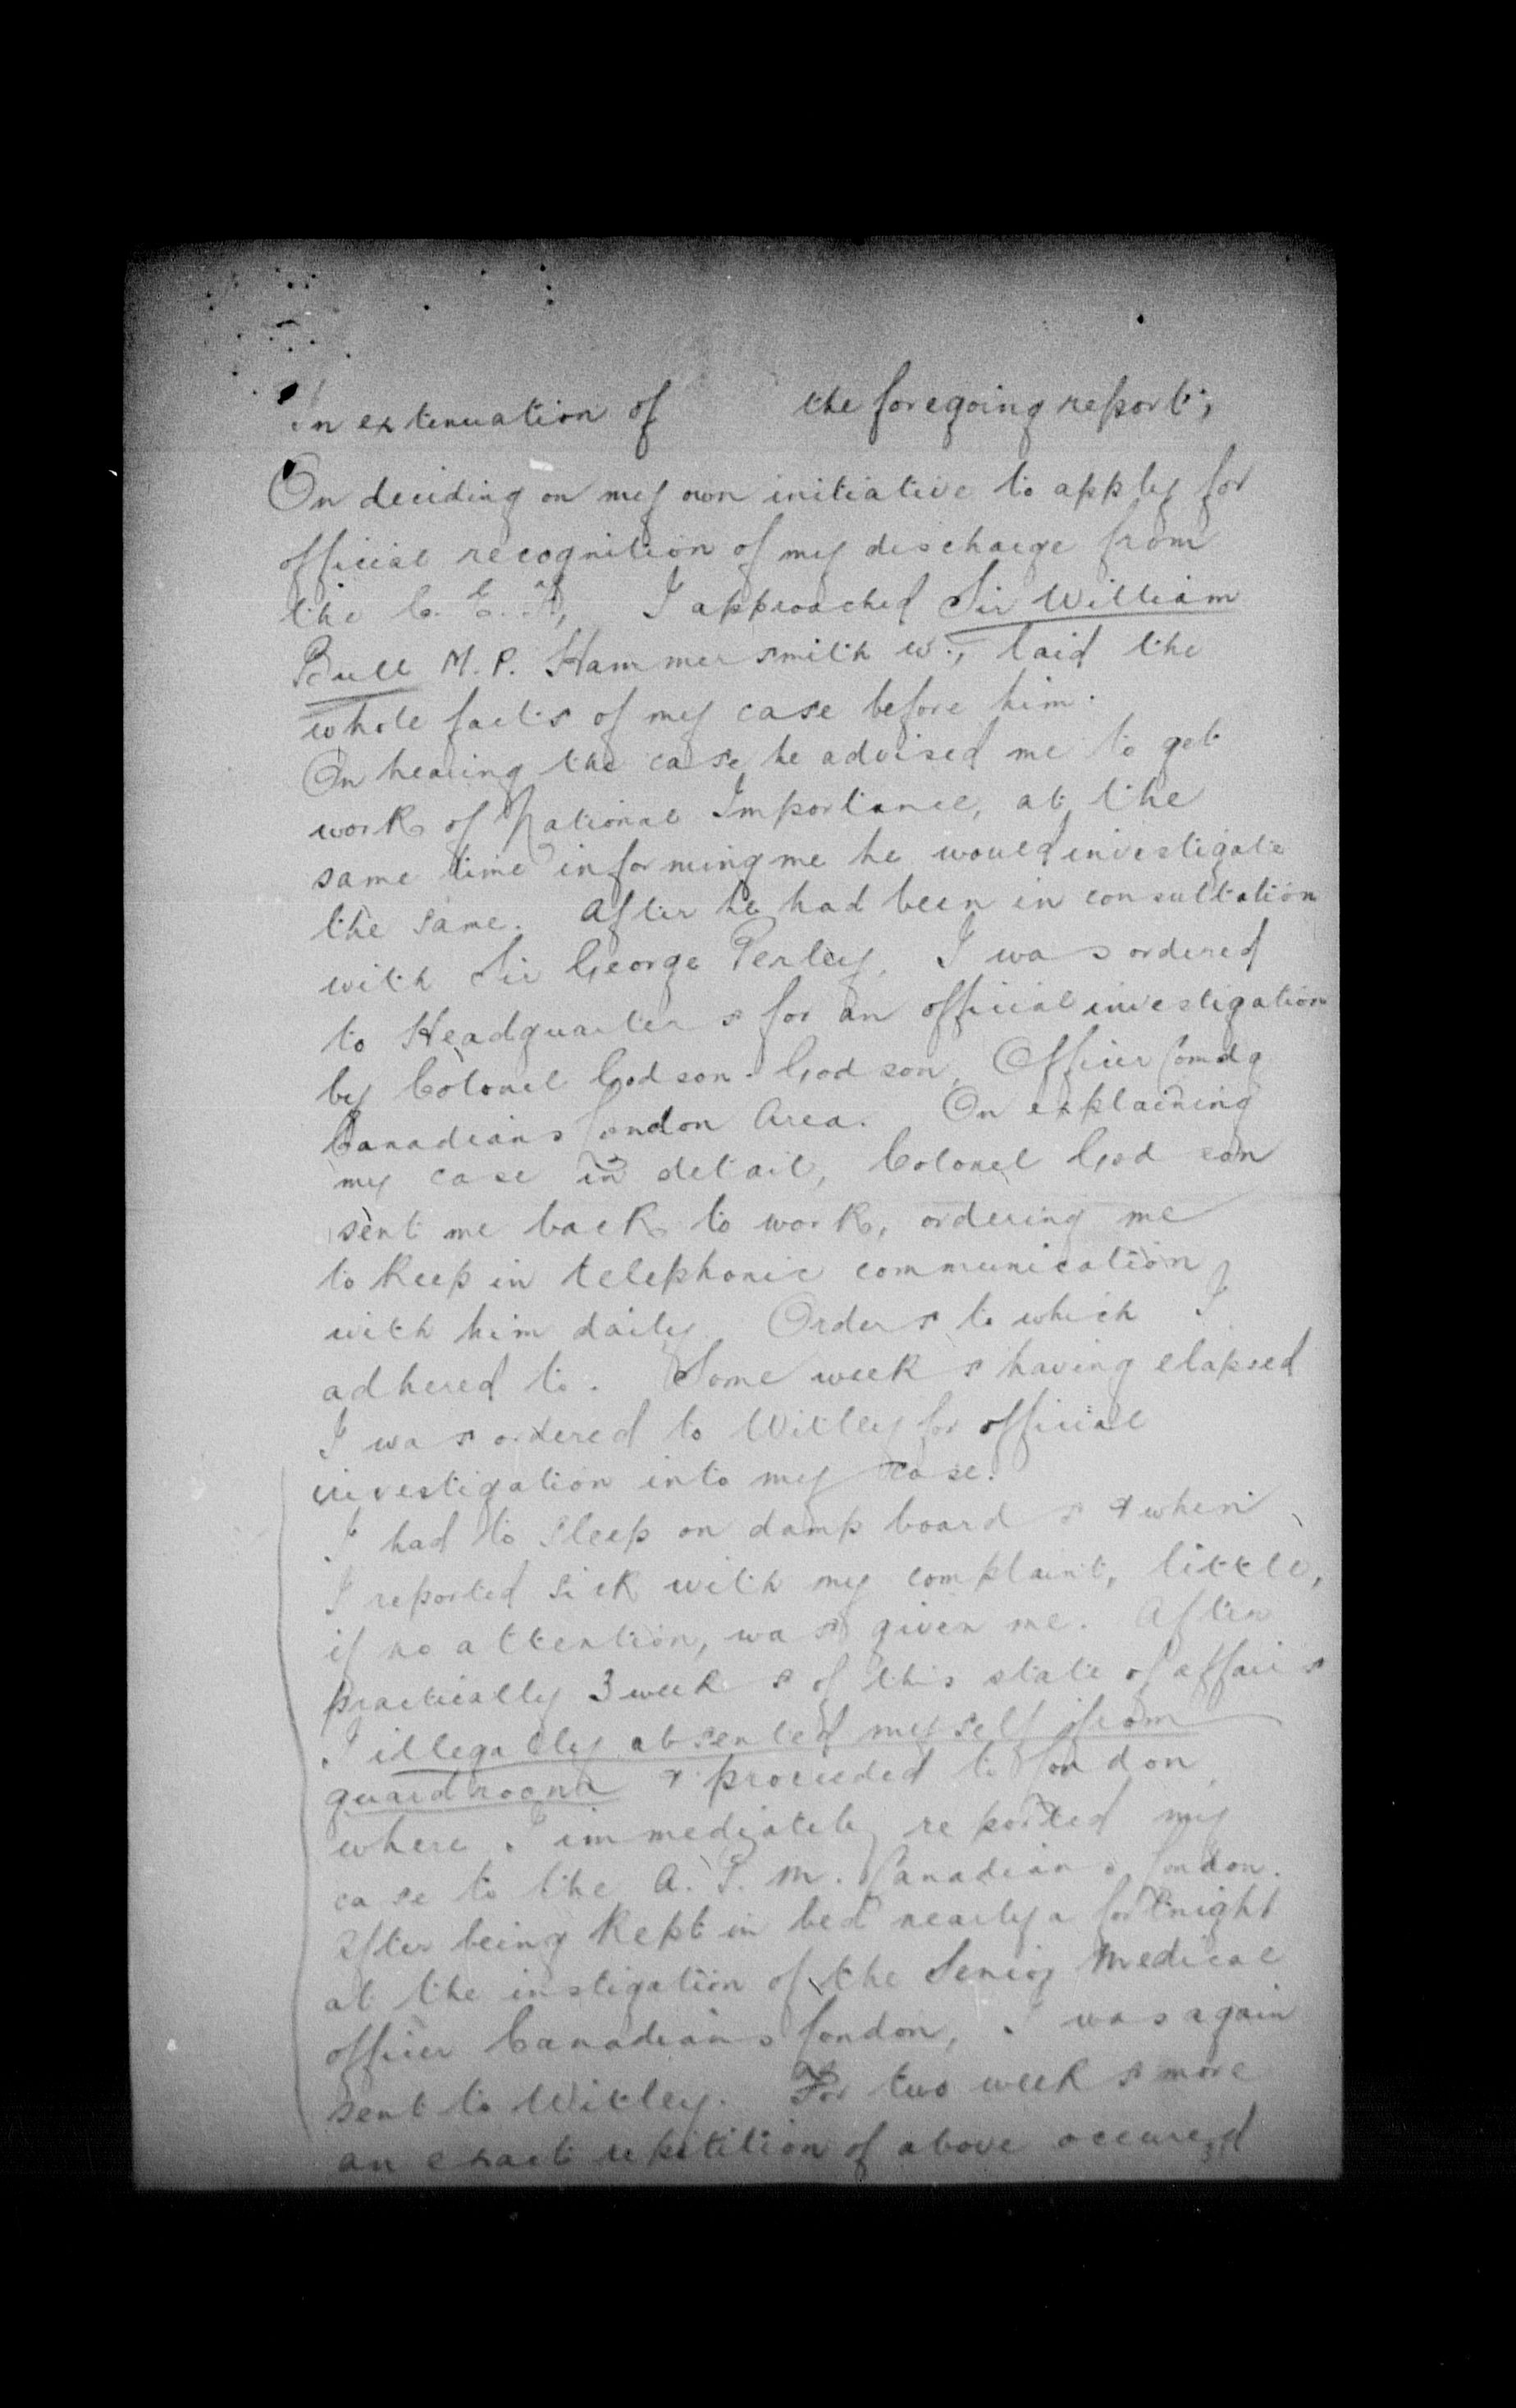 In extenuation of the foregoing report;
On deciding on my own initiative to apply for
official recognition of my discharge from
the C. E. F, I approached Sir William
Bull M. P. Hammersmith W., laid the
whole facts of my case before him.
On hearing the case he advised me to get
work of National Importance, at the
same time informing me he would investigate
the same. After he had been in consultation
with Sir George Perley, I was ordered
to Headquarters for an official investigation
by Colonel Godson-Godson, Officer Comdg
Canadians London Area. On explaining
my case in detail, Colonel Godson
sent me back to work, ordering me
to keep in telephonic communication
with him daily. Orders to which I
adhered to. Some weeks having elapsed
I was ordered to Witley for official
investigation into my case.
I had to sleep on damp boards & when
I reported sick with my complaint, little,
if no attention, was given me. After
practically 3 weeks of this state of affairs
I illegally absented myself from
guardroom & proceeded to London
where I immediately reported my
case to the A. P. M. Canadians London.
After being kept in bed nearly a fortnight
at the instigation of the Senior Medical
officer Canadians London, I was again
sent to Witley. For two weeks more
an exact repitition of above occured